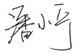 潘小可